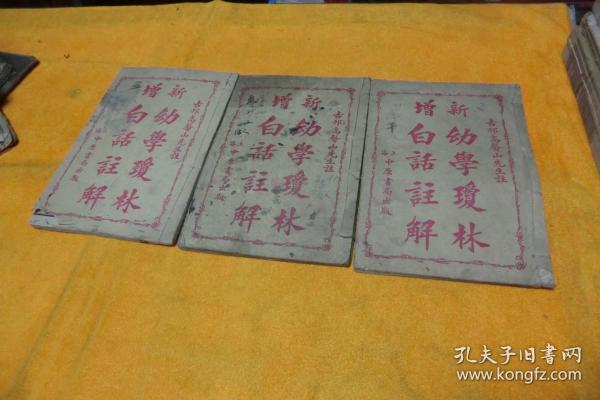 高馨山先生註
新增
幼學瓊林
白話註解
上海中原書局出版
高馨山先生註
新增
幼學瓊林
白話註解
上海中原書局出版
高馨山先生註
新增
幼學瓊林
白話註解
上海中原書局出版
孔夫子旧书网
www.kongfz.com